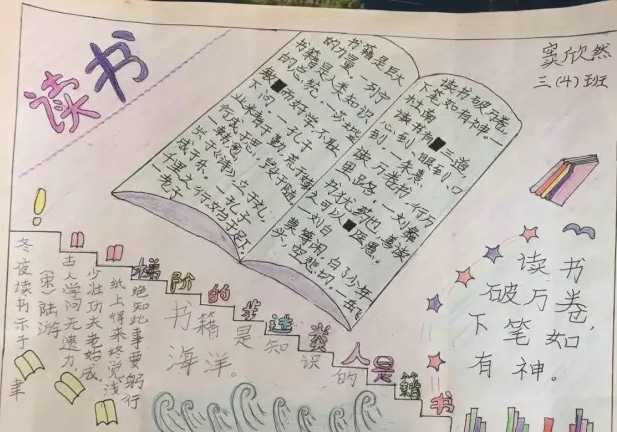 读书
窦欣然
三(4)班
书籍是巨大
的力量。一列宁
书籍是人类知识
的总统。一莎
敏而好学,不耻
下问。一孔子
业精于勤,荒于嬉
行成于思,毁于随
一韩愈
兴于《诗》,立于礼,
成于乐。一孔子
千里之行,始于足下
老子
读书破万卷,
下笔如有神。一
杜甫
读书有三道,
心到,眼到,口
到。一朱熹
读万卷书,行万
里路。一刘彝
书犹药也,善读
之可以医愚。
一刘向
莫等闲,白了少年
头,空悲切。岳飞
书籍是人类进步的阶梯!
冬夜读书示子聿
(宋)陆游
古人学问无遗力,
少壮功夫老始成
纸上得来终觉浅
绝知此事要躬行
书籍是知识的
海洋。
读书
破万卷,
下笔如
有神。